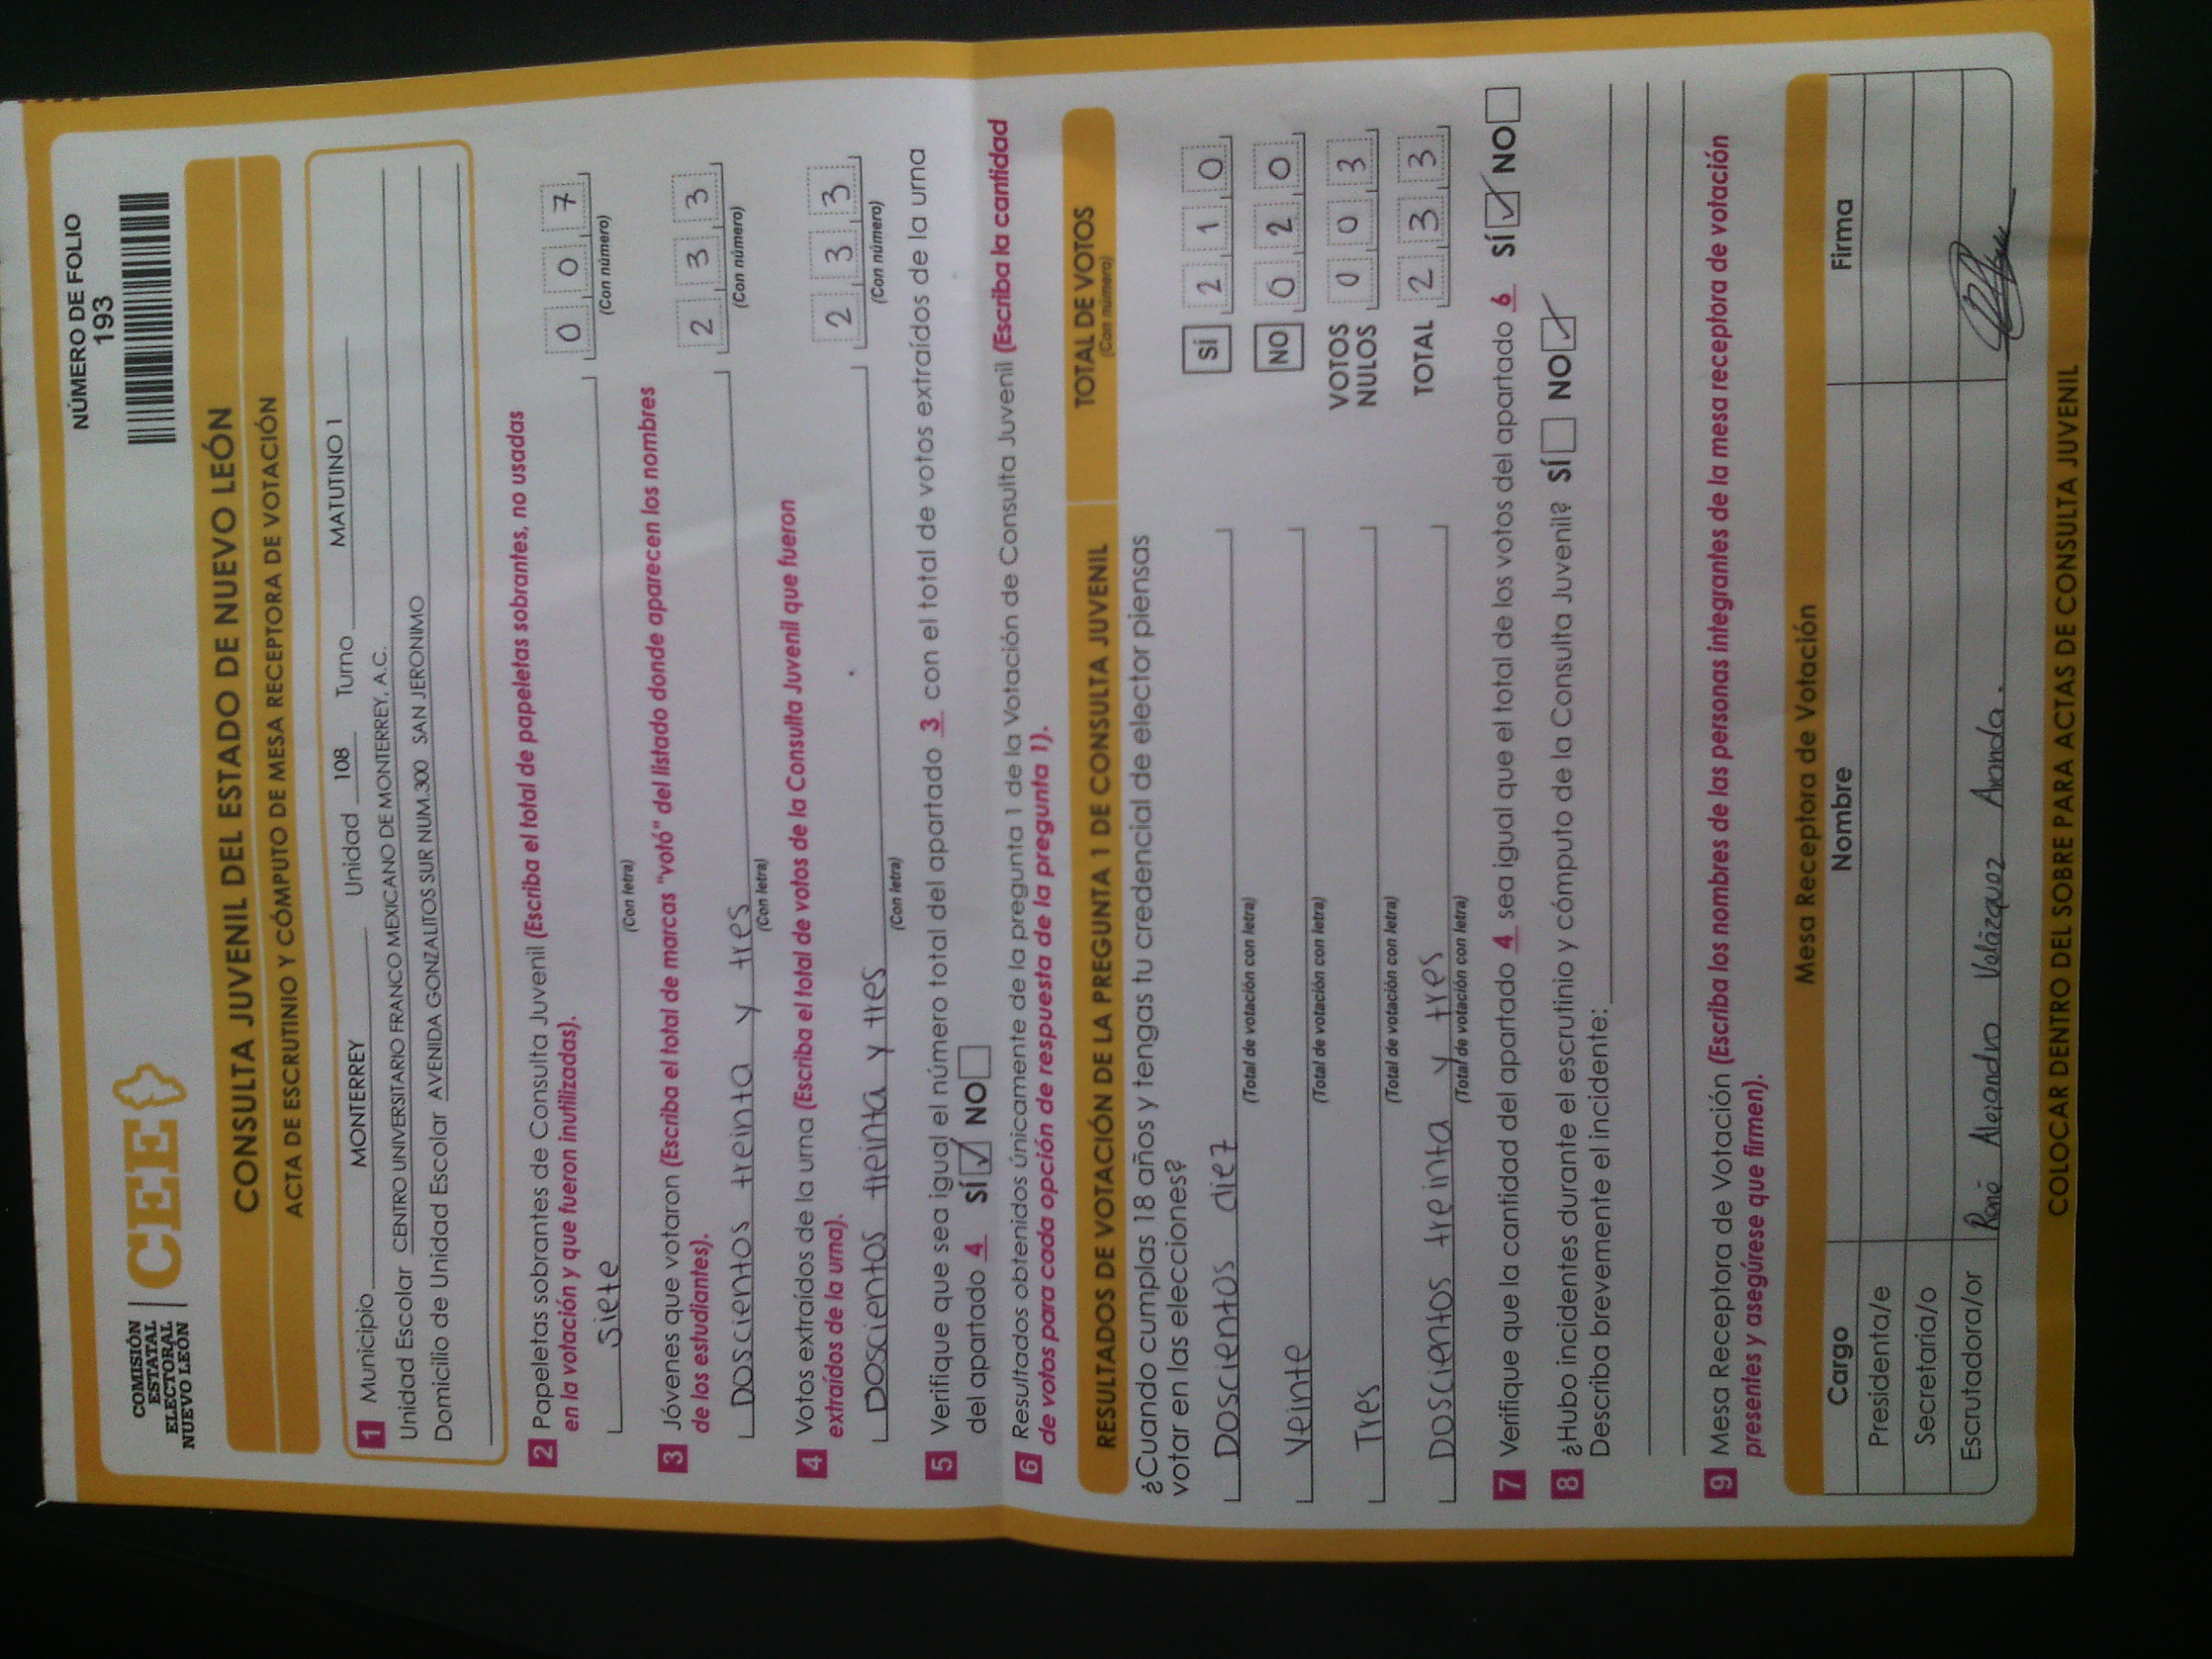 COMISIÓN
ESTATAL
ELECTORAL
NUEVO LEÓN
CEE
NÚMERO DE FOLIO
193
CONSULTA JUVENIL DEL ESTADO DE NUEVO LEÓN
ACTA DE ESCRUTINIO Y CÓMPUTO DE MESA RECEPTORA DE VOTACIÓN
1 Municipio MONTERREY Unidad 108 Turno MATUTINO 1
Unidad Escolar CENTRO UNIVERSITARIO FRANCO MEXICANO DE MONTERREY, A.C.
Domicilio de Unidad Escolar AVENIDA GONZALITOS SUR NUM.300 SAN JERONIMO
2 Papeletas sobrantes de Consulta Juvenil (Escriba el total de papeletas sobrantes, no usadas
en la votación y que fueron inutilizadas).
siete 0 0 7
(Con letra) (Con número)
3 Jóvenes que votaron (Escriba el total de marcas "votó" del listado donde aparecen los nombres
de los estudiantes).
Doscientos treinta y tres 2 3 3
(Con letra) (Con número)
4 Votos extraídos de la urna (Escriba el total de votos de la Consulta Juvenil que fueron
extraídos de la urna).
Doscientos treinta y tres 2 3 3
(Con letra) (Con número)
5 Verifique que sea igual el número total del apartado 3 con el total de votos extraídos de la urna
del apartado 4 SÍ ✓ NO
6 Resultados obtenidos únicamente de la pregunta 1 de la Votación de Consulta Juvenil (Escriba la cantidad
de votos para cada opción de respuesta de la pregunta 1).
RESULTADOS DE VOTACIÓN DE LA PREGUNTA 1 DE CONSULTA JUVENIL TOTAL DE VOTOS
(Con número)
¿Cuando cumplas 18 años y tengas tu credencial de elector piensas
votar en las elecciones?
Doscientos diez SÍ 2 1 0
(Total de votación con letra)
Veinte NO 0 2 0
(Total de votación con letra)
Tres VOTOS NULOS 0 0 3
(Total de votación con letra)
Doscientos treinta y tres TOTAL 2 3 3
(Total de votación con letra)
7 Verifique que la cantidad del apartado 4 sea igual que el total de los votos del apartado 6 SÍ ✓ NO
8 ¿Hubo incidentes durante el escrutinio y cómputo de la Consulta Juvenil? SÍ NO ✓
Describa brevemente el incidente:
9 Mesa Receptora de Votación (Escriba los nombres de las personas integrantes de la mesa receptora de votación
presentes y asegúrese que firmen).
Mesa Receptora de Votación
Cargo Nombre Firma
Presidenta/e
Secretaria/o
Escrutadora/or René Alejandro Velázquez Aranda.
COLOCAR DENTRO DEL SOBRE PARA ACTAS DE CONSULTA JUVENIL